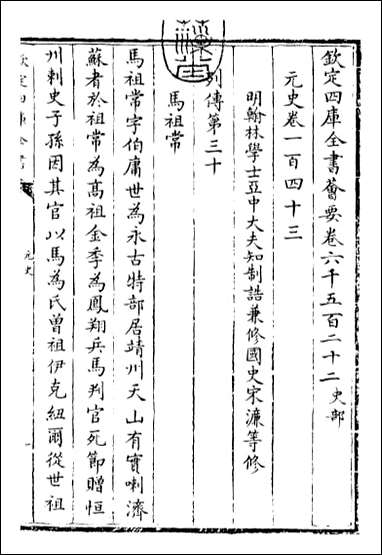 欽定四庫全書薈要卷六千五百二十二史部
元史卷一百四十三
明翰林學士亞中大夫知制誥兼修國史宋濂等修
列傳第三十
馬祖常
馬祖常字伯庸世為永古特部居靖州天山有實喇濟
蘇者於祖常為髙祖金季為鳳翔兵馬判官死節贈恒
州刺史子孫因其官以馬為氏曽祖伊克紐爾從世祖
欽定四庫全書
元史
一